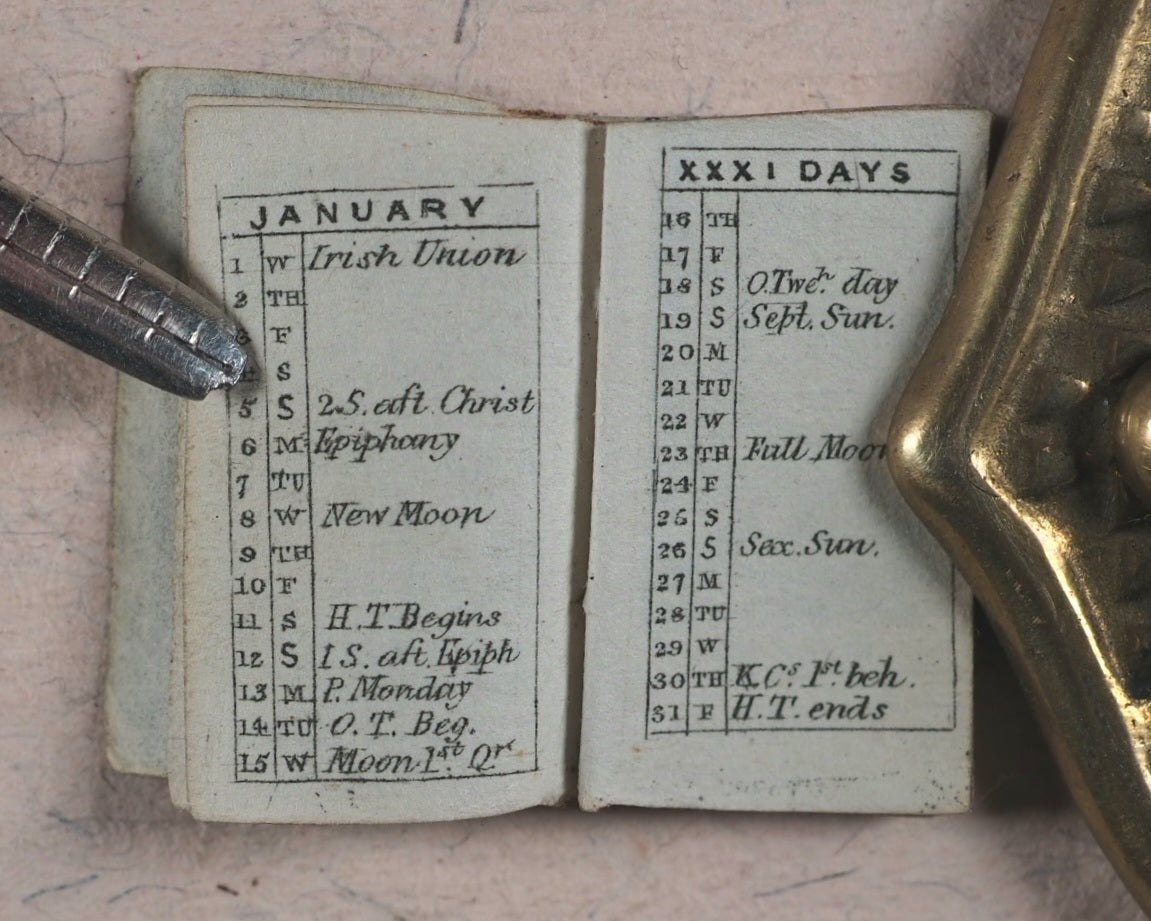 JANUARY
1 W Irish Union
2 TH
3 F
4 S
5 S 2.S. aft. Christ
6 M Epiphany
7 TU
8 W New Moon
9 TH
10 F
11 S H.T. Begins
12 S 1 S. aft. Epiph
13 M P. Monday
14 TU O.T. Beg.
15 W Moon 1st. Qr
XXXI DAYS
16 TH
17 F
18 S O.Tweh. day
19 S Sept. Sun.
20 M
21 TU
22 W
23 TH Full Moon
24 F
25 S
26 S Sex. Sun.
27 M
28 TU
29 W
30 TH K.Cs. 1st. beh.
31 F H.T. ends